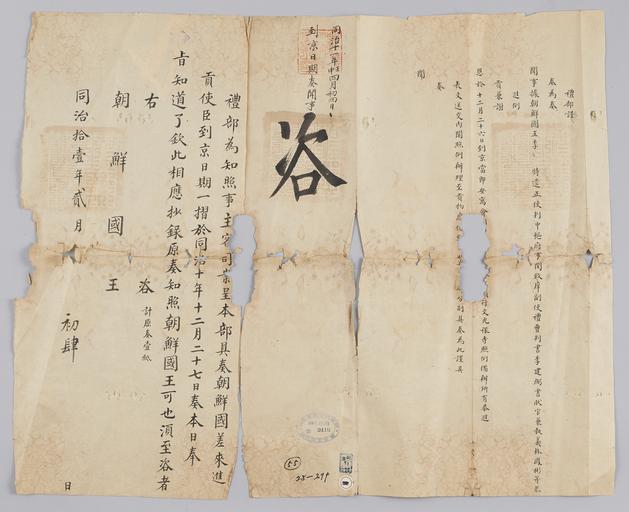 禮部謹
奏為奏
聞事據朝鮮國王李
特遣正使判中樞府事閔致庠副使禮曹判書李建弼書狀官兼執義
進例
貢兼謝
恩於十二月二十六日到京當即安寓會
照例備辦所有奉進
表文送交內閣照例辦理至貢物
具奏為此謹具
奏
聞
同治十一年壬申四月初四日
到京日期奏聞事
咨
禮部為知照事主客司案呈本部具奏朝鮮國差來進
貢使臣到京日期一摺於同治十年十二月二十七日奏本日奉
旨知道了欽此相應抄錄原奏知照朝鮮國王可也須至咨者
計原奏壹紙
右 咨
朝鮮國王
同治拾壹年貳月 初肆 日
55
28-299